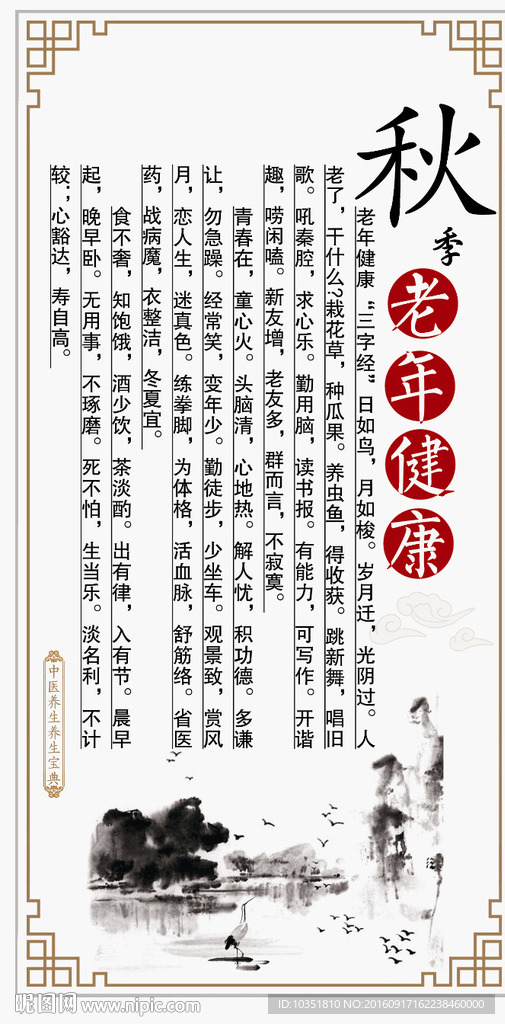 秋
季
老年健康
老年健康“三字经”日如鸟，月如梭。岁月迁，光阴过。人
老了，干什么?栽花草，种瓜果。养虫鱼，得收获。跳新舞，唱旧
歌。吼秦腔，求心乐。勤用脑，读书报。有能力，可写作。开谐
趣，唠闲嗑。新友增，老友多，群而言，不寂寞。
青春在，童心火。头脑清，心地热。解人忧，积功德。多谦
让，勿急躁。经常笑，变年少。勤徒步，少坐车。观景致，赏风
月，恋人生，迷真色。练拳脚，为体格，活血脉，舒筋络。省医
药，战病魔，衣整洁，冬夏宜。
食不奢，知饱饿，酒少饮，茶淡酌。出有律，入有节。晨早
起，晚早卧。无用事，不琢磨。死不怕，生当乐。淡名利，不计
较；心豁达，寿自高。
中医养生养生宝典
昵图网 www.nipic.com
ID:10351810 NO:20160917162238460000